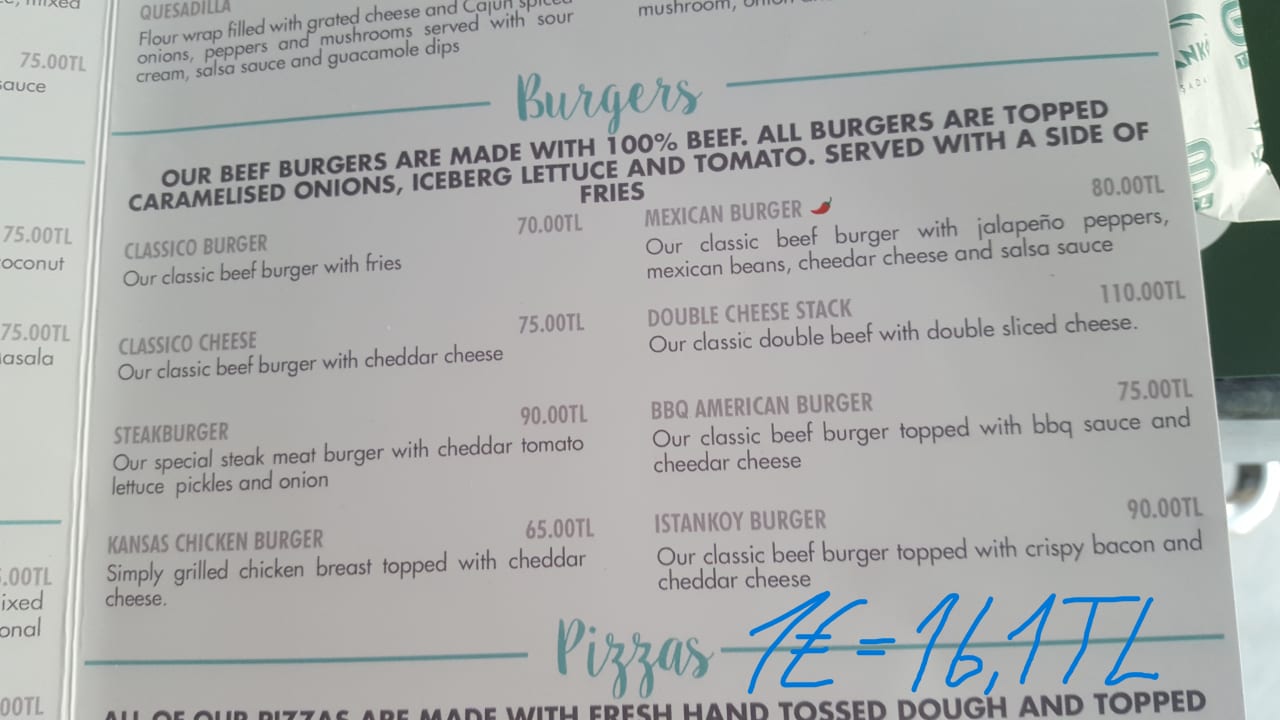 mixed
75.00TL
sauce
75.00TL
75.00TL
QUESADILLA
Flour wrap filled with grated cheese and Cajun spiced
onions, peppers and mushrooms served with sour
cream, salsa sauce and guacamole dips
mushroom,
Burgers
OUR BEEF BURGERS ARE MADE WITH 100% BEEF. ALL BURGERS ARE TOPPED
CARAMELISED ONIONS, ICEBERG LETTUCE AND TOMATO. SERVED WITH A SIDE OF
FRIES
CLASSICO BURGER 70.00TL
Our classic beef burger with fries
CLASSICO CHEESE 75.00TL
Our classic beef burger with cheddar cheese
STEAKBURGER 90.00TL
Our special steak meat burger with cheddar tomato
lettuce pickles and onion
KANSAS CHICKEN BURGER 65.00TL
Simply grilled chicken breast topped with cheddar
cheese.
MEXICAN BURGER 80.00TL
Our classic beef burger with jalapeño peppers,
mexican beans, cheedar cheese and salsa sauce
DOUBLE CHEESE STACK 110.00TL
Our classic double beef with double sliced cheese.
BBQ AMERICAN BURGER 75.00TL
Our classic beef burger topped with bbq sauce and
cheedar cheese
ISTANKOY BURGER 90.00TL
Our classic beef burger topped with crispy bacon and
cheddar cheese
Pizzas
1€ = 16,1TL
ALL OF OUR PIZZAS ARE MADE WITH FRESH HAND TOSSED DOUGH AND TOPPED